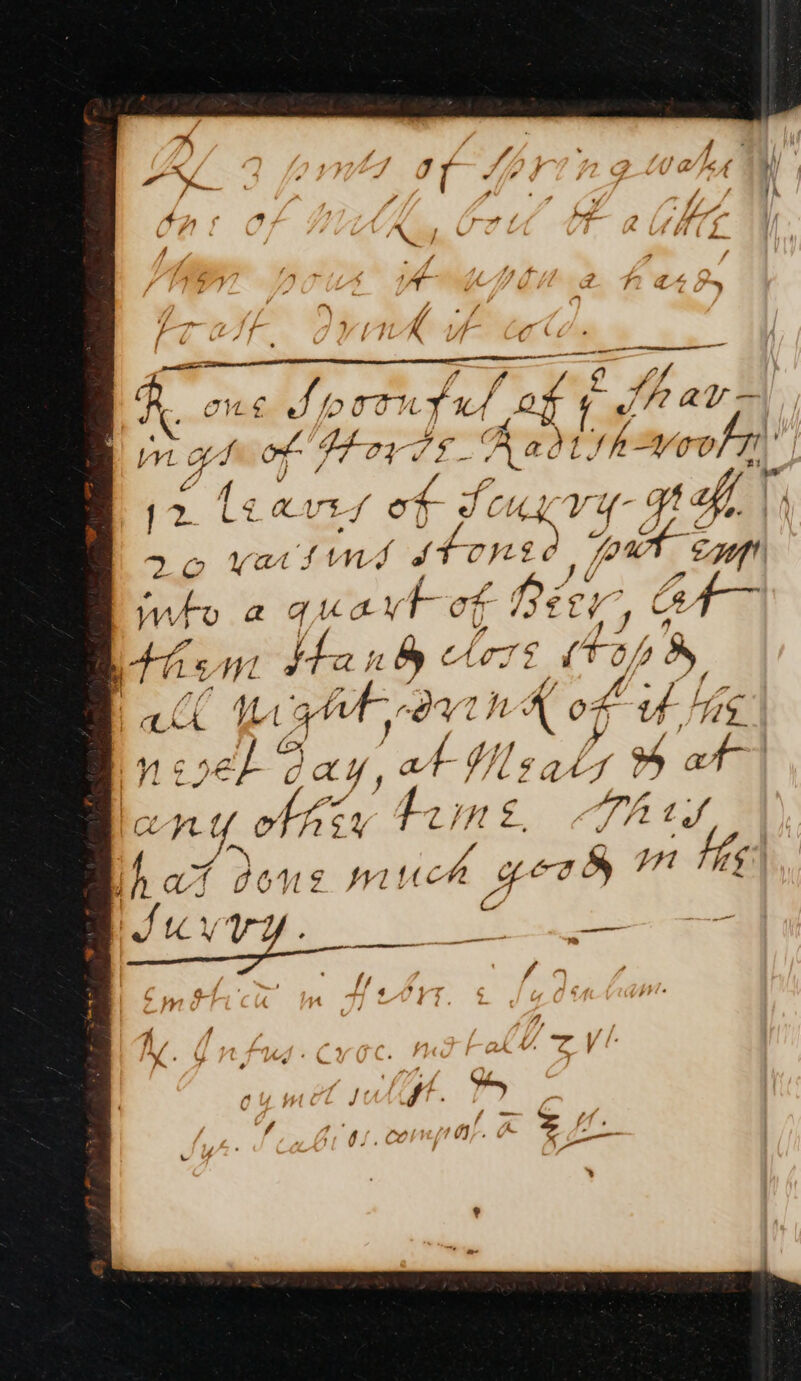 ℞ 3 pints of Spring water
one of Milk, boil it a little
then pour it upon a hard
tost, Drink it cold.
℞. one Spoonful of ye Shav-
ings of Horse-Radish-roots
12 leaves of Scurvy-grass.
20 raisins stoned, put em
into a quart of Beer, let
them stand close stopd
all Night, drink of it the
next day, at Meals & at
any other time. This
has done much good in the
Survy.
Emetick in Febr. e Sydenham.
℞. Infus. croc. metall ʒ vi
oxymel &
Syr. Scabios. compos. a ℥ ss.